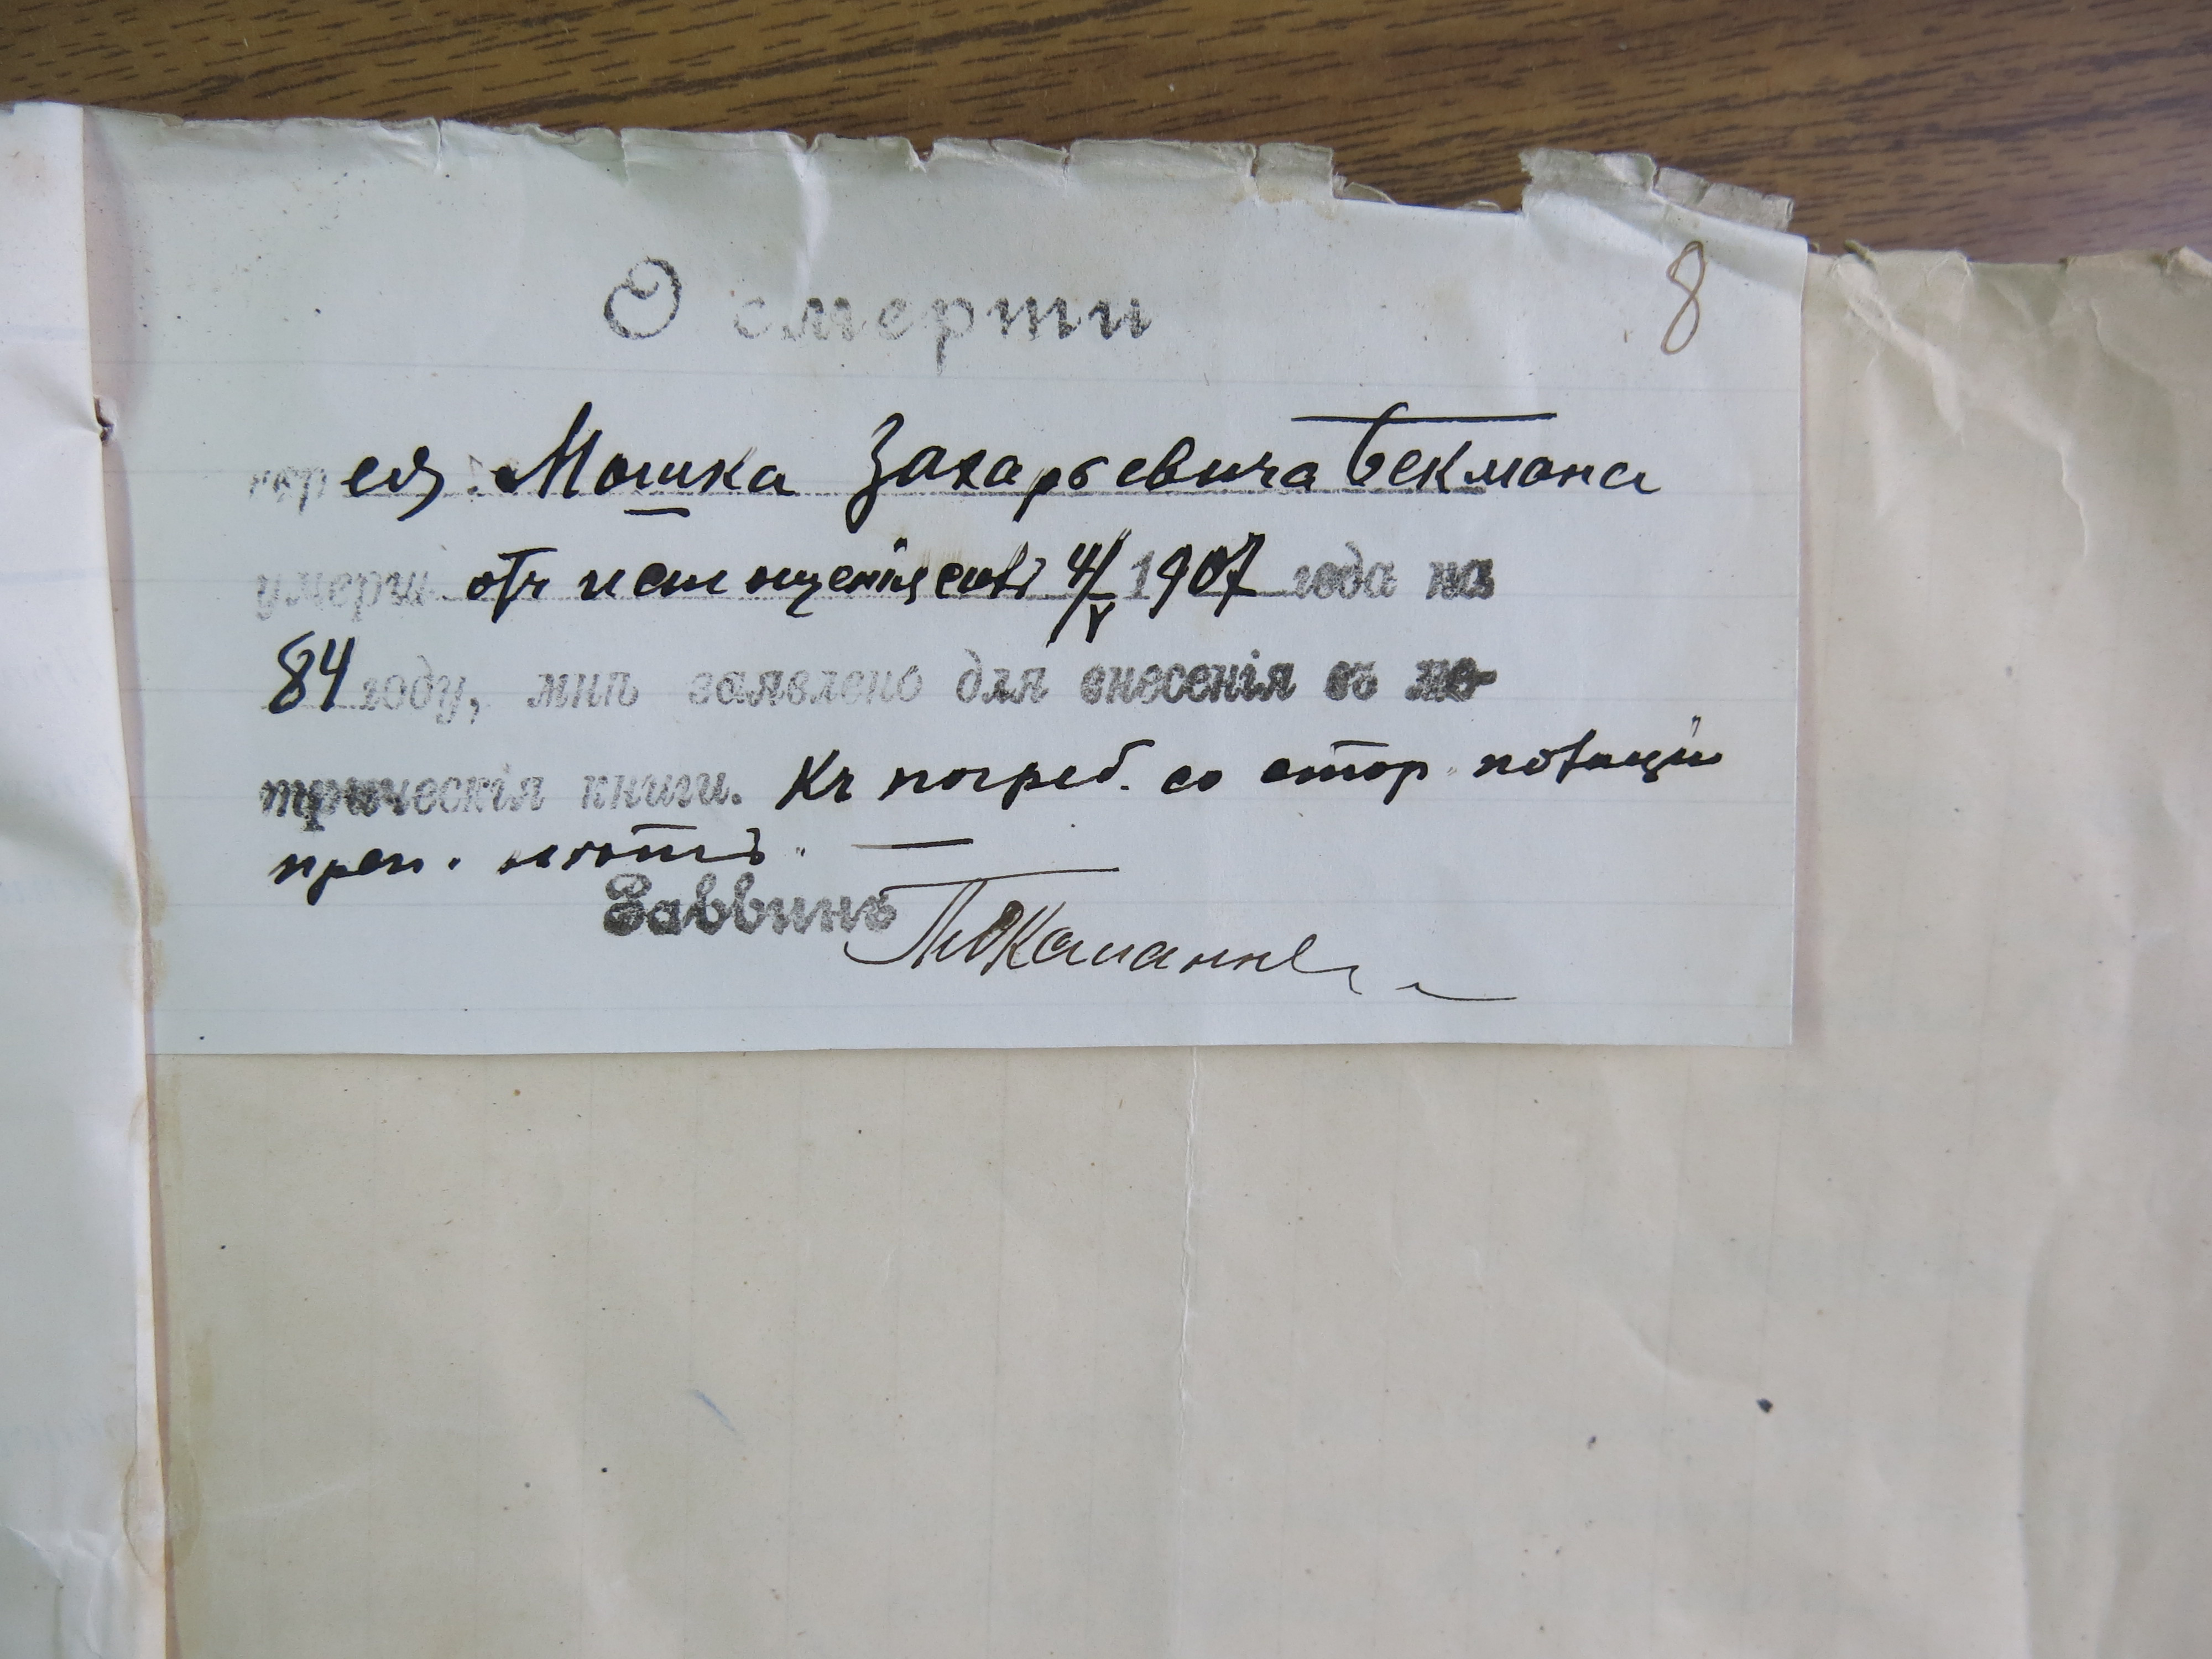 О смерти
8
евр. Мошка Захарьевича Бекмана
умерш. отъ истощенія силъ 4/V 1907 года на
84 году, мнѣ заявлено для внесенія въ ме-
трическія книги. Къ погреб. со стор. полиціи
преп. нѣтъ. —
Раввинъ